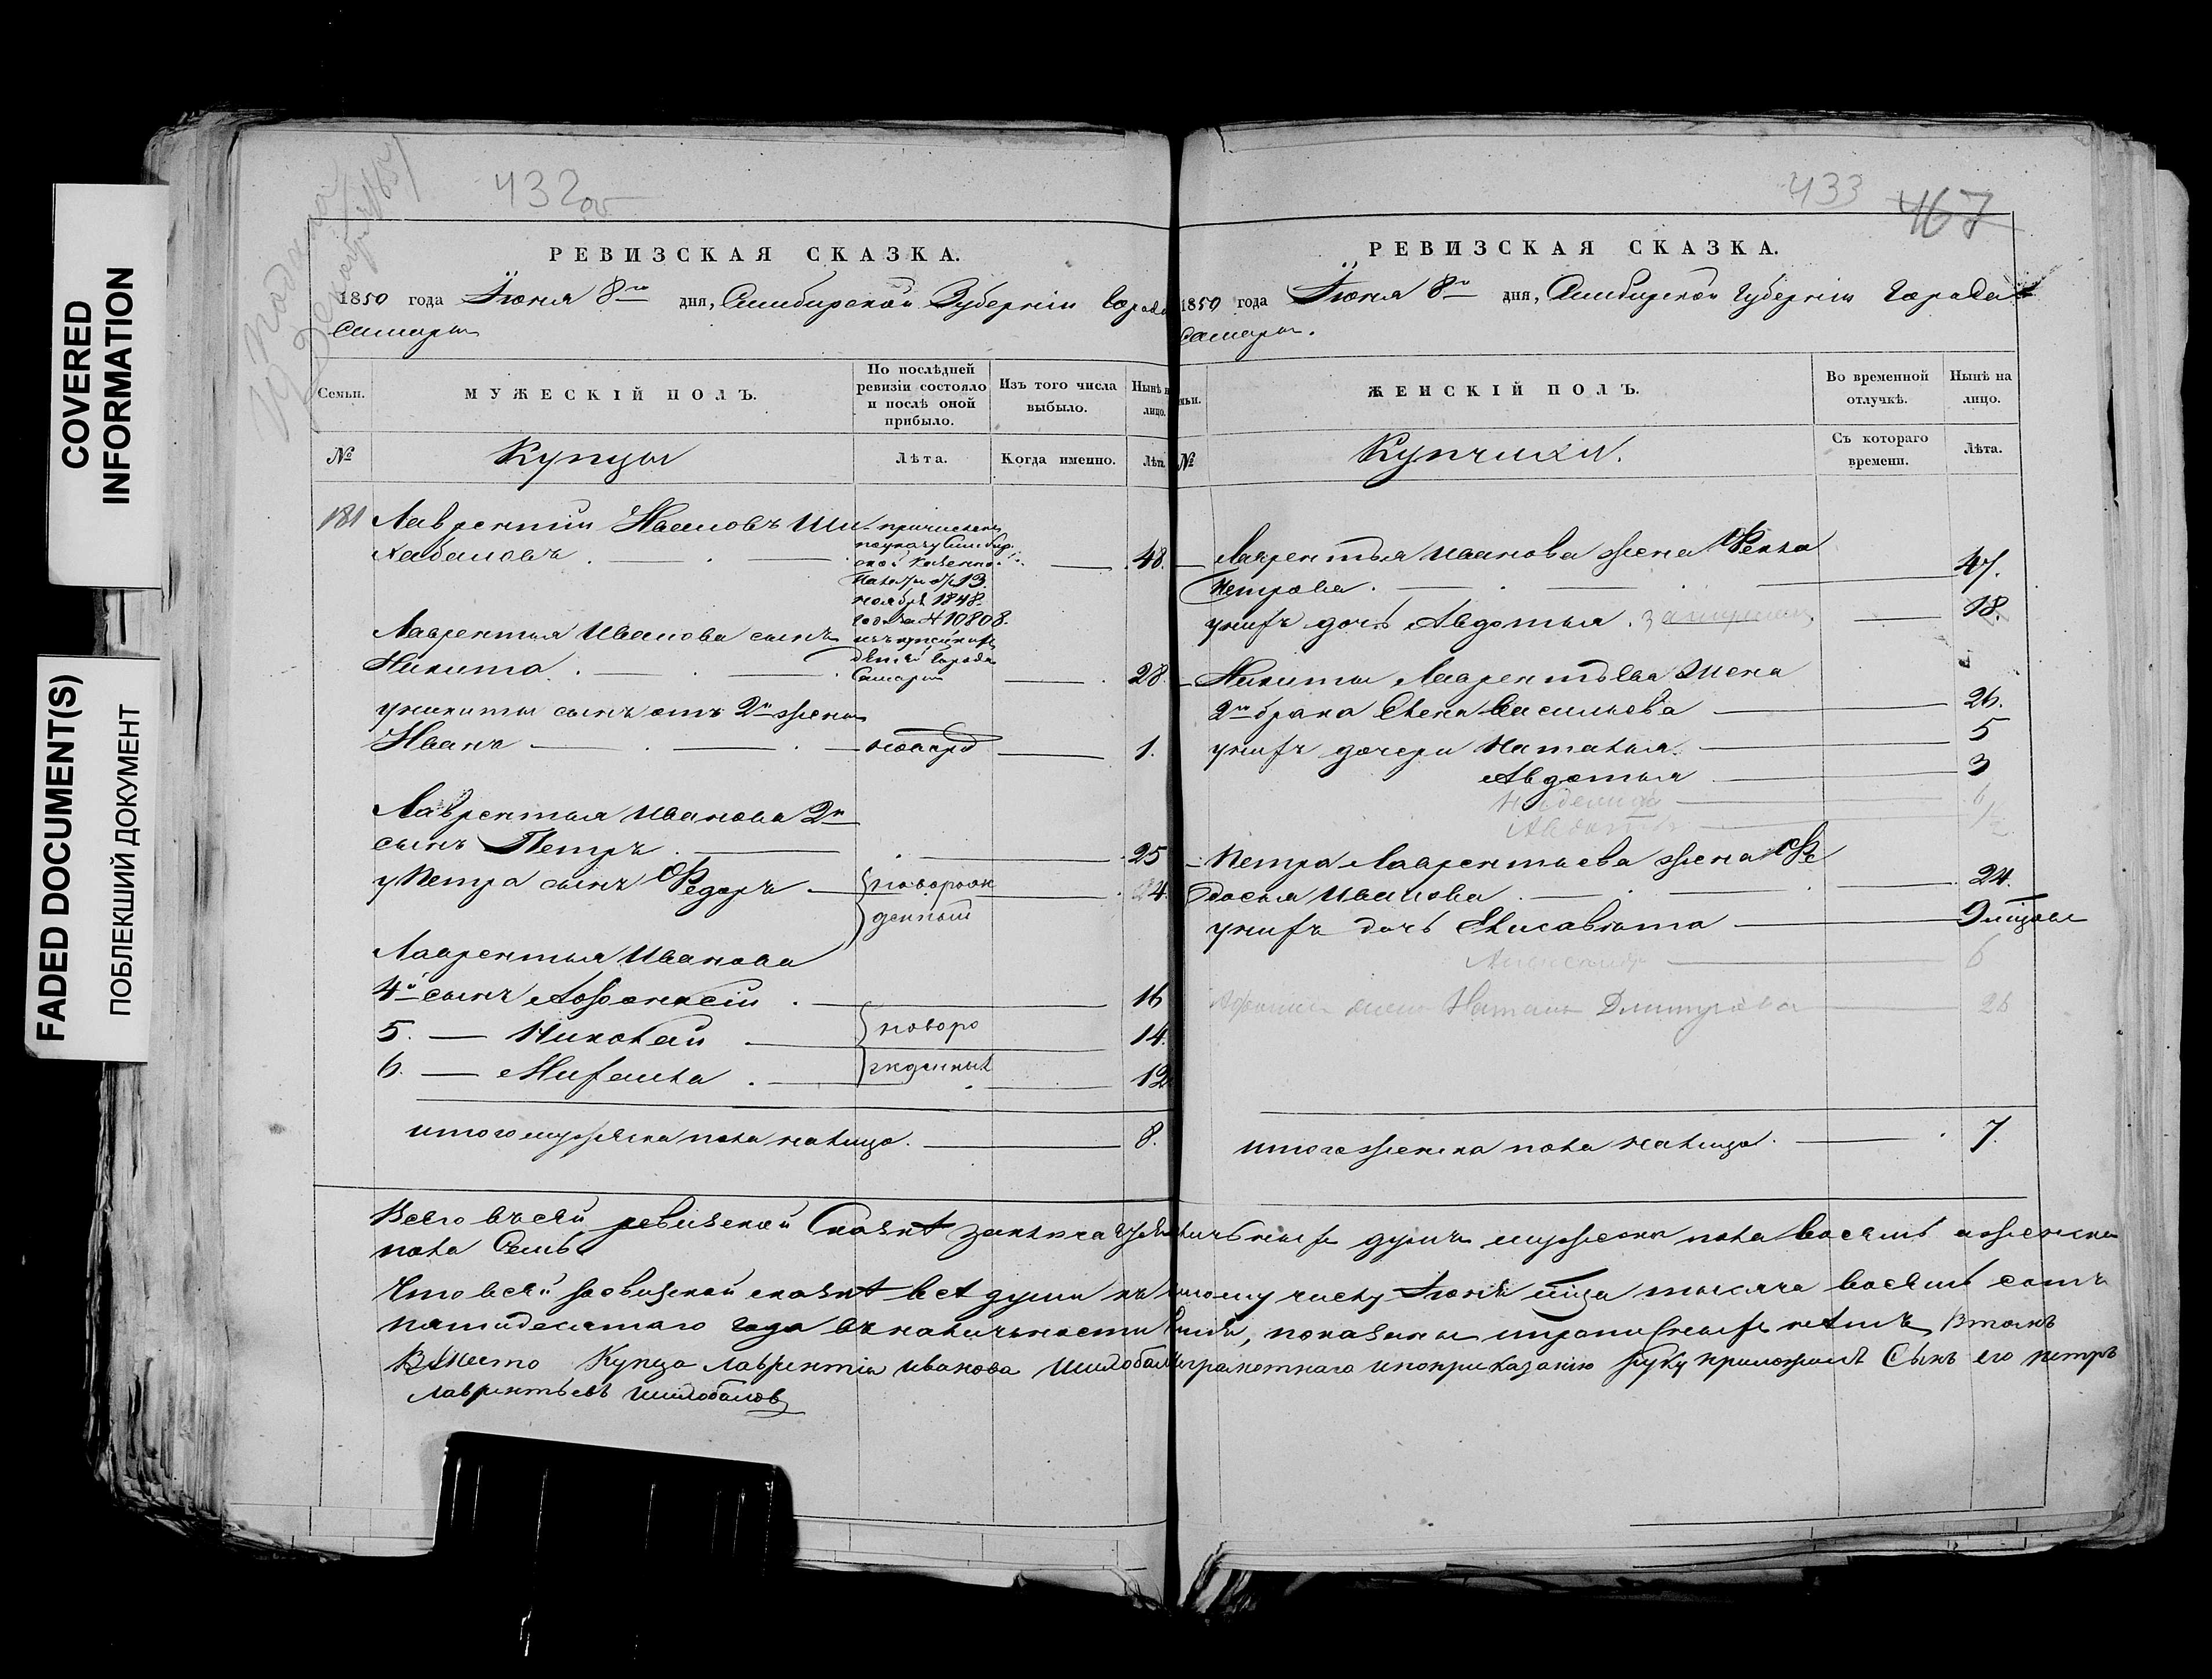 COVERED
INFORMATION
FADED DOCUMENT(S)
ПОБЛЕКШИЙ ДОКУМЕНТ
432 об
РЕВИЗСКАЯ СКАЗКА.
1850 года Iюня 8го дня, Симбирской Губернiи города
Самары
Семьи.
МУЖЕСКIЙ ПОЛЪ.
По послѣдней
ревизiи состояло
и послѣ оной
прибыло.
Изъ того числа
выбыло.
Нынѣ на
лицо.
№
Купцы
Лѣта.
Когда именно.
Лѣта.
181 Лаврентiй Ивановъ Ши
хабаловъ
48.
причисленъ
по указу Симбир
ской казенной
палаты отъ 13
ноября 1848
года за № 10808.
города
Самары
Лаврентья Иванова сынъ
Никита
28.
у Никиты сынъ отъ 2й жены
Иванъ
1.
Лаврентья Иванова 2й
сынъ Петръ
25
у Петра сынъ Федоръ
новорож
денный
4.
Лаврентья Иванова
4й сынъ Афонасiй
16
5. — Николай
новоро
14
6. — Михайла
жденныя
12
итого мужеска пола на лицо
8.
433 467
РЕВИЗСКАЯ СКАЗКА.
1850 года Iюня 8го дня, Симбирской Губернiи Города
Самары.
ЖЕНСКIЙ ПОЛЪ.
Во временной
отлучкѣ.
Нынѣ на
лицо.
№
Купчихи.
Съ котораго
времени.
Лѣта.
Лаврентья Иванова жена Фекла
Петрова
47.
у нихъ дочь Авдотья
18.
Никиты Лаврентьева жена
2го брака Елена Васильева
26.
у нихъ дочери Наталья
5
Авдотья
3
Петра Лаврентьева жена Фе
досья Иванова
24.
у нихъ дочь Елисавета
Наталья Дмитрова
26
итого женска пола на лицо
7.
Всего въ сей ревизской Сказкѣ заключается наличныхъ душъ мужеска пола восемь и женска
пола Семь
Что в сей ревизской сказкѣ всѣ души къ числу Iюня мца тысяча восемь сотъ
пятидесятаго года въ наличности были, показаны и прописныхъ нетъ, в томъ
Вместо Купца Лаврентiя Иванова неграмотнаго и по приказанiю руку приложилъ Сынъ его Петръ
Лаврентьевъ